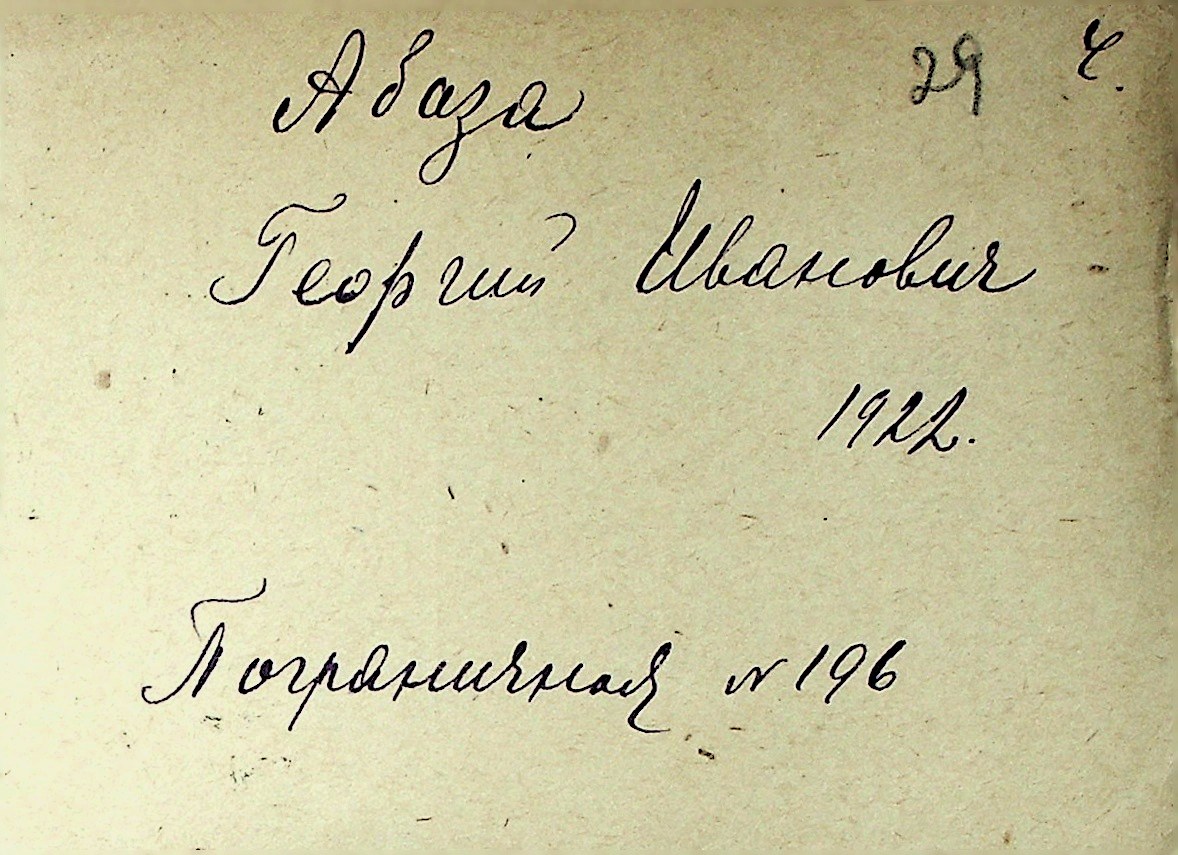 Абаза 29 Ч.
Георгий Иванович
1922.
Пограничная № 196